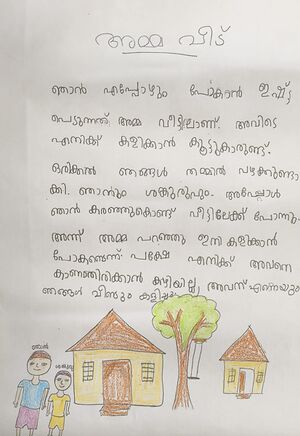 അമ്മ വീട്
ഞാൻ എപ്പോഴും പോകാൻ ഇഷ്ട
പെടുന്നത് അമ്മ വീട്ടിലാണ്. അവിടെ
എനിക്ക് കളിക്കാൻ കൂട്ടുകാരുണ്ട്.
ഒരിക്കൽ ഞങ്ങൾ തമ്മിൽ വഴക്കുണ്ടാ
ക്കി. ഞാനും ശങ്കുരുവും. അപ്പോൾ
ഞാൻ കരഞ്ഞുകൊണ്ട് വീട്ടിലേക്ക് പോന്നു.
അന്ന് അമ്മ പറഞ്ഞു ഇനി കളിക്കാൻ
പോകണ്ടെന്ന് പക്ഷേ എനിക്ക് അവനെ
കാണാതിരിക്കാൻ കഴിയില്ല, അവന് എന്നെയും
ഞങ്ങൾ വീണ്ടും കളിച്ചു.
ഞാൻ